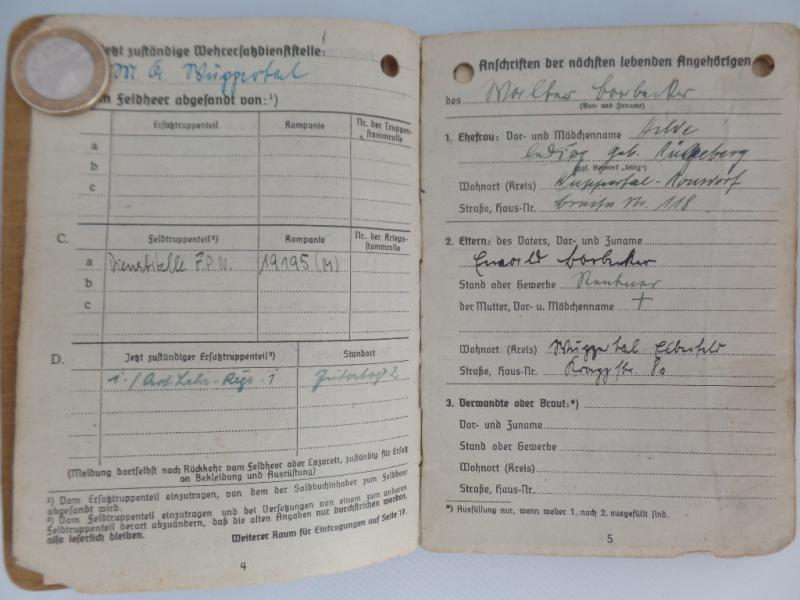 Jetzt zuständige Wehrersatzdienststelle:
Wuppertal
Feldheer abgesandt von:¹)
Ersatztruppenteil Kompanie Nr. der Truppen-
stammrolle
a
b
c
C. Feldtruppenteil²) Kompanie Nr. der Kriegs-
stammrolle
a Dienststelle F.P.N. 19195 (M)
b
c
D. Jetzt zuständiger Ersatztruppenteil²) Standort
1./Art. Lehr-Regt. 1 Jüterbog 2
(Meldung dortselbst nach Rückkehr vom Feldheer oder Lazarett, zuständig für Ersatz
an Bekleidung und Ausrüstung)
¹) Vom Ersatztruppenteil einzutragen, von dem der Soldbuchinhaber zum Feldheer
abgesandt wird.
²) Vom Feldtruppenteil einzutragen und bei Versetzungen von einem zum anderen
Feldtruppenteil derart abzuändern, daß die alten Angaben nur durchstrichen werden,
also leserlich bleiben.
Weiterer Raum für Eintragungen auf Seite 17.
4
Anschriften der nächsten lebenden Angehörigen
des Walter Borbecker
(Vor- und Zuname)
1. Ehefrau: Vor- und Mädchenname Hilde
geb.
Wohnort (Kreis) Wuppertal-Ronsdorf
Straße, Haus-Nr. 118
2. Eltern: des Vaters, Vor- und Zuname
Ewald Borbecker
Stand oder Gewerbe Rentner
der Mutter, Vor- u. Mädchenname +
Wohnort (Kreis) Wuppertal Elberfeld
Straße, Haus-Nr.
3. Verwandte oder Braut:*)
Vor- und Zuname
Stand oder Gewerbe
Wohnort (Kreis)
Straße, Haus-Nr.
*) Ausfüllung nur, wenn weder 1. noch 2. ausgefüllt sind.
5